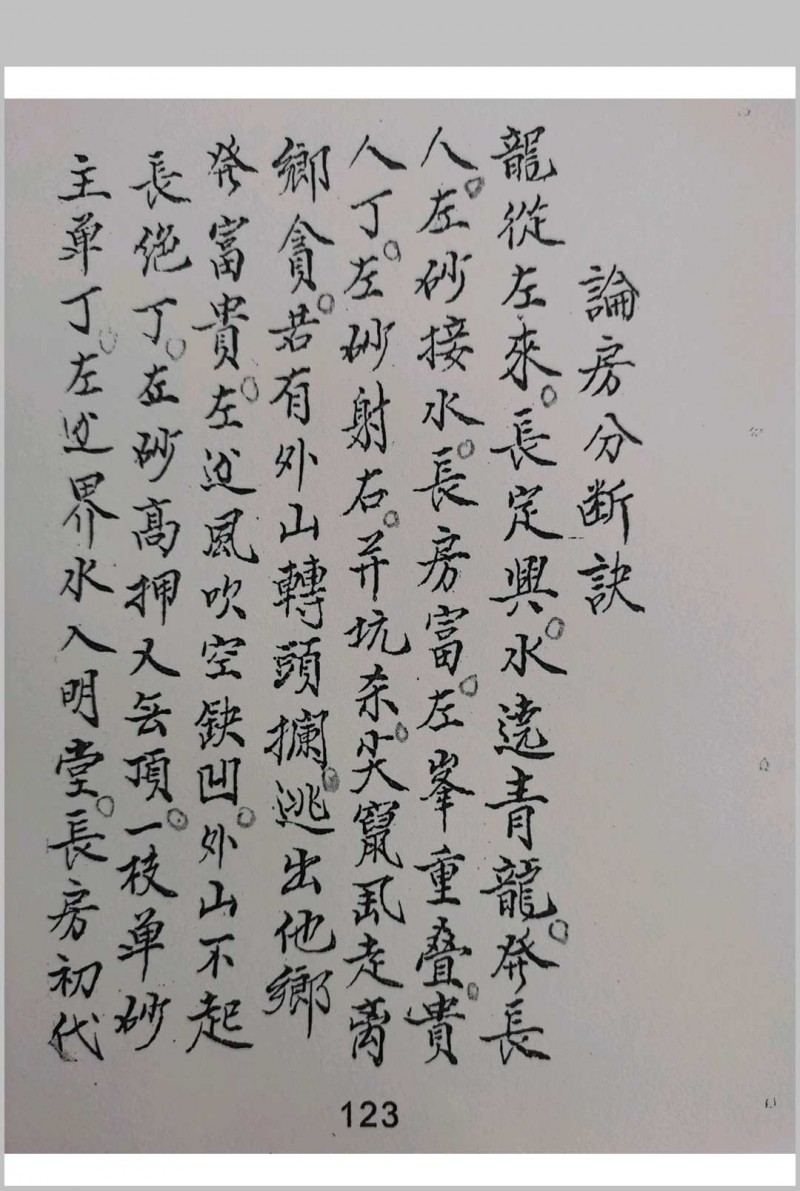 論房分断訣
龍從左來。長定興。水遶青龍。發長
人。左砂接水。長房富。左峯重叠。貴
人丁。左砂射右。并坑杀。尖竄乱走离
鄉貪。若有外山轉頭攔。逃出他鄉
發富貴。左边風吹空缺凹。外山不起
長绝丁。左砂高押又无頂。一枝单砂
主单丁。左边界水入明堂。長房初代
123